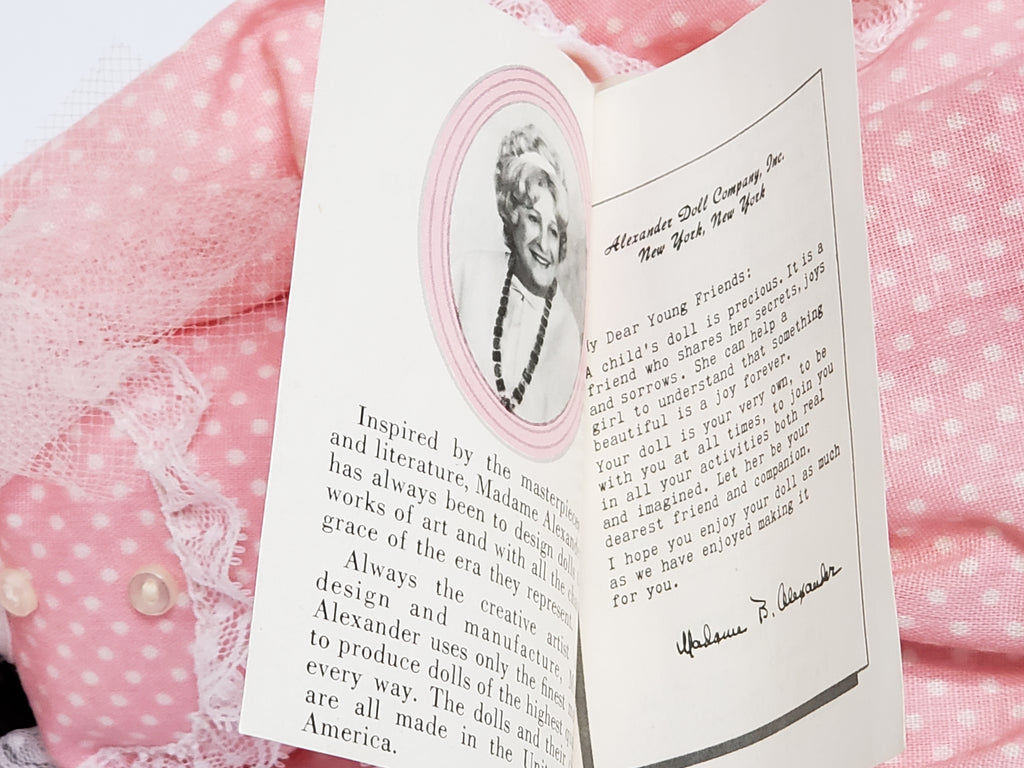 Inspired by the masterpieces
and literature, Madame Alexander
has always been to design dolls
works of art and with all the
grace of the era they represent.
Always the creative artist
design and manufacture,
Alexander uses only the finest
to produce dolls of the highest
every way. The dolls and their
are all made in the
America.
Alexander Doll Company, Inc.
New York, New York
y Dear Young Friends:
A child's doll is precious. It is a
friend who shares her secrets, joys
and sorrows. She can help a
girl to understand that something
beautiful is a joy forever.
Your doll is your very own, to be
with you at all times, to join you
in all your activities both real
and imagined. Let her be your
dearest friend and companion.
I hope you enjoy your doll as much
as we have enjoyed making it
for you.
Madame B. Alexander